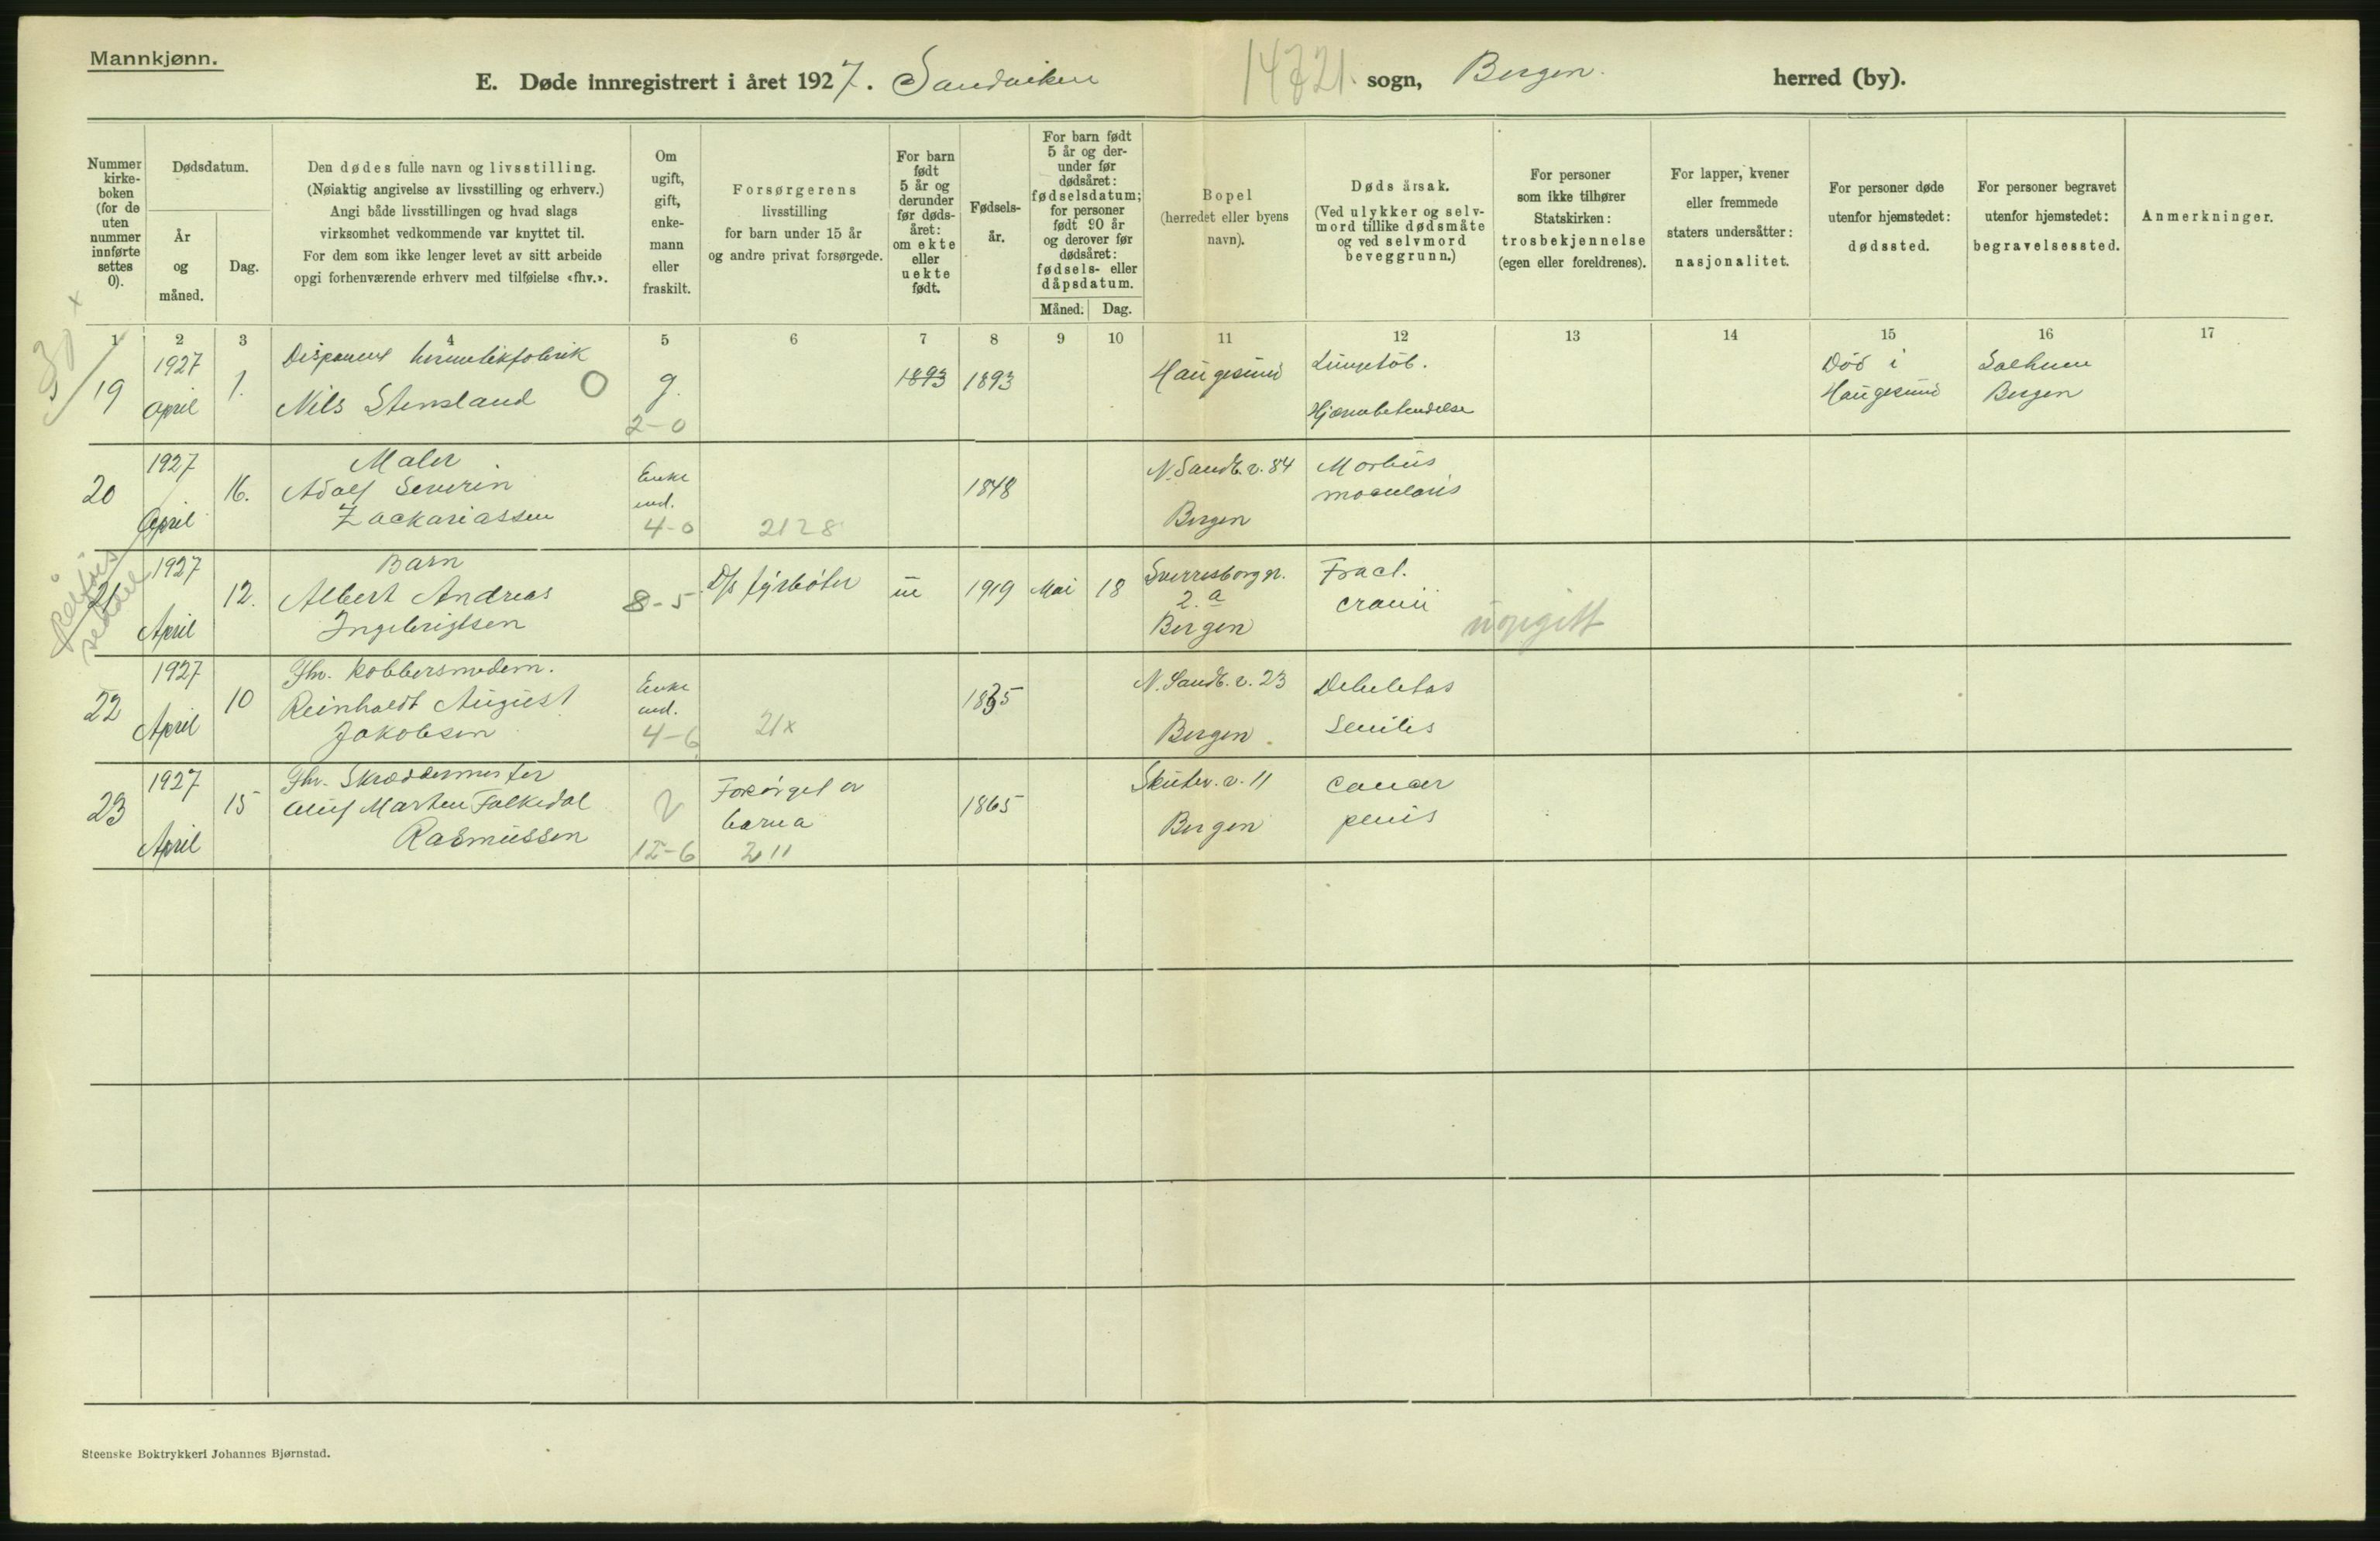 Mannkjønn.
E. Døde innregistrert i året 1927. Sandviken 14721. sogn, Bergen. herred (by).
Nummer kirke-boken (for de uten nummer innførte settes 0).
Dødsdatum.
År og måned.
Dag.
Den dødes fulle navn og livsstilling.
(Nøiaktig angivelse av livsstilling og erhverv.)
Angi både livsstillingen og hvad slags
virksomhet vedkommende var knyttet til.
For dem som ikke lenger levet av sitt arbeide
opgi forhenværende erhverv med tilføielse «fhv.».
Om ugift, gift, enke-mann eller fraskilt.
Forsørgerens
livsstilling
for barn under 15 år
og andre privat forsørgede.
For barn født 5 år og derunder før døds-året: om ekte eller uekte født.
Fødsels-år.
For barn født 5 år og der-under før dødsåret: fødselsdatum; for personer født 90 år og derover før dødsåret: fødsels- eller dåpsdatum.
Måned: Dag.
Bopel
(herredet eller byens
navn).
Dødsårsak.
(Ved ulykker og selv-
mord tillike dødsmåte
og ved selvmord
beveggrunn.)
For personer
som ikke tilhører
Statskirken:
trosbekjennelse
(egen eller foreldrenes).
For lapper, kvener
eller fremmede
staters undersåtter:
nasjonalitet.
For personer døde
utenfor hjemstedet:
dødssted.
For personer begravet
utenfor hjemstedet:
begravelsessted.
Anmerkninger.
1 2 3 4 5 6 7 8 9 10 11 12 13 14 15 16 17
19 1927 April 1. Disponent hermetikfabrik
Nils Stensland O g. 2-0 1893 1893 Haugesund Lungetub.
Hjernebetendelse Død i
Haugesund Salhum
Bergen
20 1927 April 16. Maler
Adolf Severin
Zackariassen Enke
md. 4-0 2128 1848 N. Sandv. v. 84
Bergen Morbus
21 1927 April 12. Barn
Albert Andreas
Ingebrigtsen 8-5 D/s fyrbøter 1919 Mai 18 Sverresborggt.
2. a
Bergen Fract.
cranii uopgitt
22 1927 April 10 Fhv. Kobbersmedem.
Reinholdt August
Jakobsen Enke
md. 4-6 21x 1835 N. Sandv. v. 23
Bergen Debelitas
Senilis
23 1927 April 15 Fhv. Skreddermester
Oluf Marten Falkedal
Rasmussen 2 12-6 Forsørget av
barna
211 1865 Skutev. v. 11
Bergen Cancer
penis
Steenske Boktrykkeri Johannes Bjørnstad.